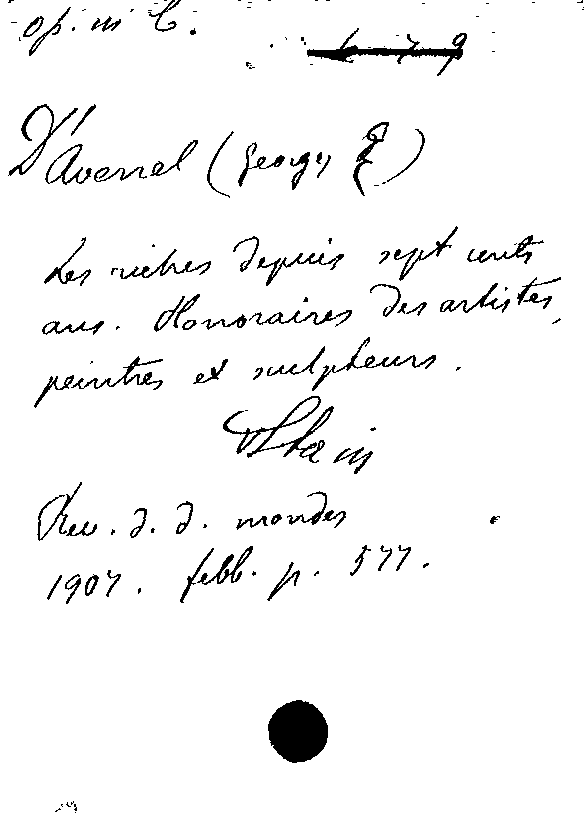 op. in C.
D'Avenel (Georges
Les riches depuis sept cents
ans. Honoraires des artistes,
peintres et sculpteurs.
Rev. d. d. mondes
1907. febb. p. 577.